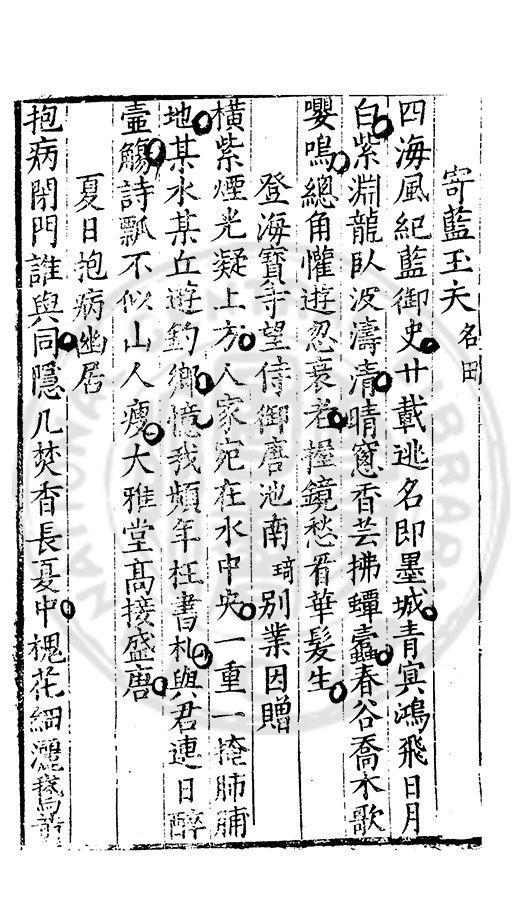 寄藍玉夫名田
四海風紀藍御史廿載逃名即墨城青冥鴻飛日月
白紫淵龍臥波濤清晴窻香芸拂蟫蠹春谷喬木歌
嚶鳴總角懽遊忽衰老握鏡愁看華髮生
登海寶寺望侍御唐池南琦別業因贈
橫紫煙光凝上方人家宛在水中央一重一掩肺腑
地某水某丘遊釣鄉憶我頻年枉書札與君連日醉
壼觴詩瓢不似山人瘦大雅堂高接盛唐
夏日抱病幽居
抱病閉門誰與同隱几焚香長夏中槐花細灑